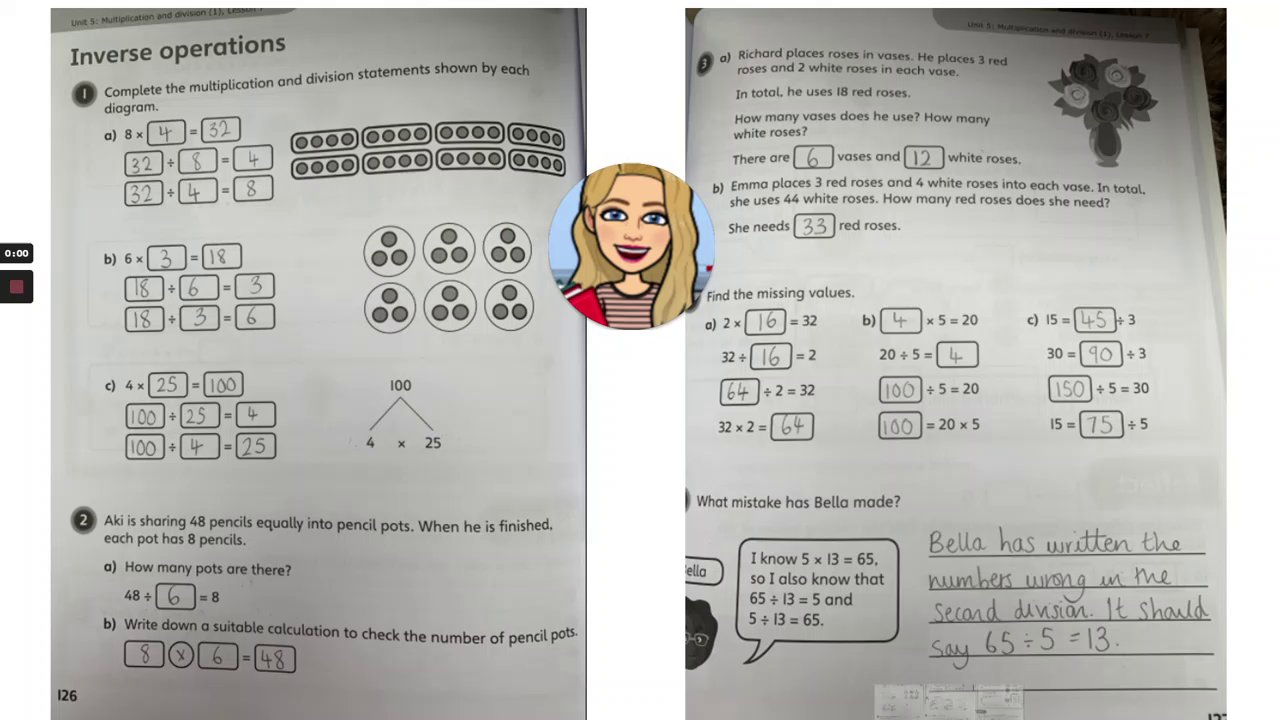 Unit 5: Multiplication and division (1), Lesson
Inverse operations
1 Complete the multiplication and division statements shown by each
diagram.
a) 8 × 4 = 32
32 ÷ 8 = 4
32 ÷ 4 = 8
b) 6 × 3 = 18
18 ÷ 6 = 3
18 ÷ 3 = 6
c) 4 × 25 = 100
100 ÷ 25 = 4
100 ÷ 4 = 25
100
4 × 25
2 Aki is sharing 48 pencils equally into pencil pots. When he is finished,
each pot has 8 pencils.
a) How many pots are there?
48 ÷ 6 = 8
b) Write down a suitable calculation to check the number of pencil pots.
8 × 6 = 48
126
0:00
Unit 5: Multiplication and division (1), Lesson 7
3 a) Richard places roses in vases. He places 3 red
roses and 2 white roses in each vase.
In total, he uses 18 red roses.
How many vases does he use? How many
white roses?
There are 6 vases and 12 white roses.
b) Emma places 3 red roses and 4 white roses into each vase. In total,
she uses 44 white roses. How many red roses does she need?
She needs 33 red roses.
Find the missing values.
a) 2 × 16 = 32
32 ÷ 16 = 2
64 ÷ 2 = 32
32 × 2 = 64
b) 4 × 5 = 20
20 ÷ 5 = 4
100 ÷ 5 = 20
100 = 20 × 5
c) 15 = 45 ÷ 3
30 = 90 ÷ 3
150 ÷ 5 = 30
15 = 75 ÷ 5
What mistake has Bella made?
ella
I know 5 × 13 = 65,
so I also know that
65 ÷ 13 = 5 and
5 ÷ 13 = 65.
Bella has written the
numbers wrong in the
second division. It should
say 65 ÷ 5 = 13.